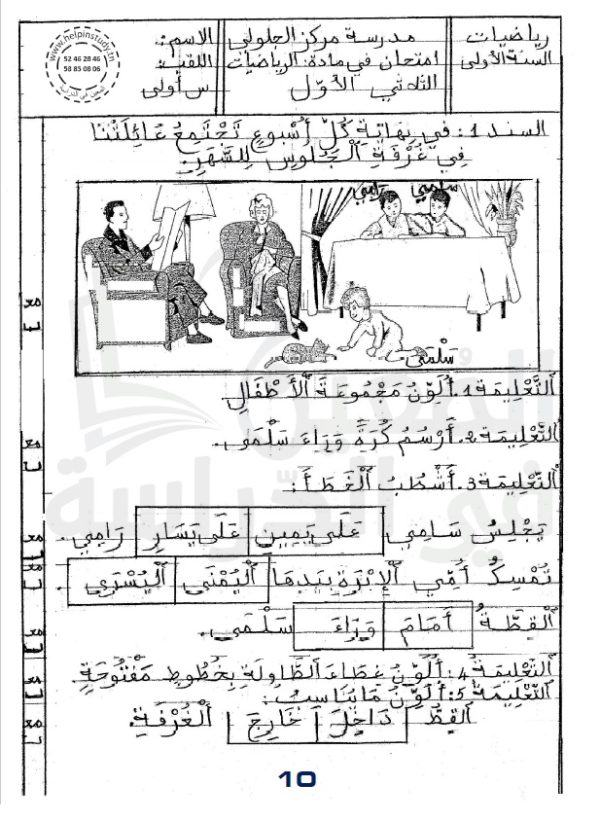 رياضيات
السنة الأولى
مدرسة مركز الجلولي
امتحان في مادة: الرياضيات
الثلاثي الأوّل
الاسم:
اللقب:
س أولى
www.helpinstudy.tn
52 46 28 46
58 85 08 06
السند 1: في نهاية كُلِّ أُسْبوعٍ تَجْتَمِعُ عَائِلَتُنَا
فِي غُرْفَةِ ٱلْجُلُوسِ لِلسَّهَرِ.
سامي
رامي
سَلْمَى
ٱلتَّعْلِيمَة 1. أُلَوِّنُ مَجْمُوعَةَ ٱلْأَطْفَالِ.
ٱلتَّعْلِيمَة 2. أَرْسُمُ كُرَةً وَرَاءَ سَلْمَى.
ٱلتَّعْلِيمَة 3. أَشْطُبُ ٱلْخَطَأَ:
يَجْلِسُ سَامِي عَلَى يَمِينِ عَلَى يَسَارِ رَامِي.
تُمْسِكُ أُمِّي ٱلْإِبْرَةَ بِيَدِهَا ٱلْيُمْنَى ٱلْيُسْرَى
ٱلْقِطَّةُ أَمَامَ وَرَاءَ سَلْمَى.
ٱلتَّعْلِيمَة 4: أُلَوِّنُ غِطَاءَ ٱلطَّاوِلَةِ بِخُطُوطٍ مَفْتُوحَةٍ.
ٱلتَّعْلِيمَة 5: أُلَوِّنُ مَا يُنَاسِبُ:
ٱلْقِطُّ دَاخِلَ خَارِجَ ٱلْغُرْفَةِ.
10